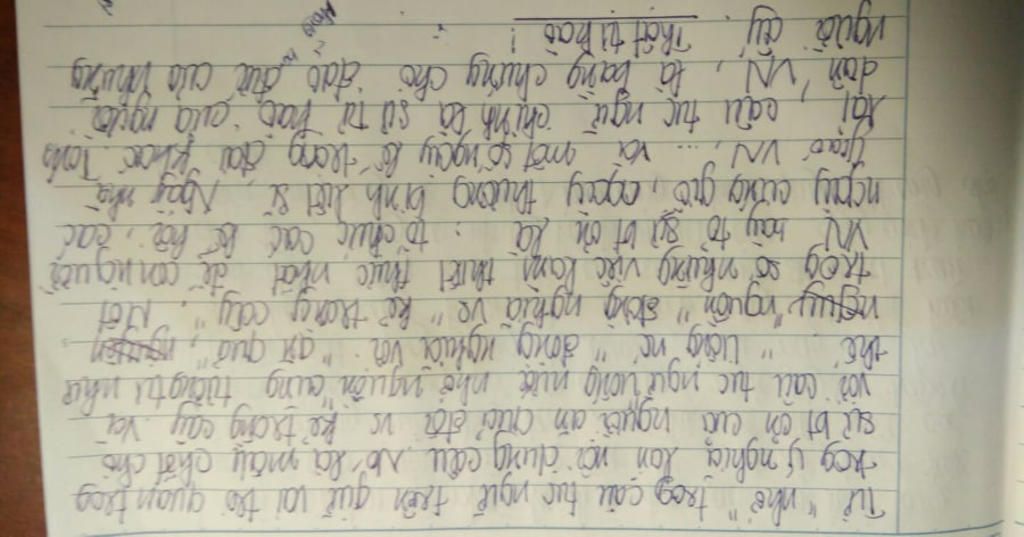 Từ "nhớ" trog câu tục ngữ trên giữ vai trò quan trọg
trog ý nghĩa lẫn nội dung câu. Nó là mấu chốt cho
sự bt ơn của người ăn chịu đối vs kẻ trồng cây. Và
với câu tục ngữ uống nước nhớ nguồn cũng tương tự như
thế. "Uống nc" đồng nghĩa với "ăn quả",
"nguồn" đồng nghĩa vs "kẻ trồng cây". Một
trog số những việc làm thiết thực nhất để con người
VN bày tỏ sự bt ơn là: tổ chức các lễ hội, các
ngày cúng giỗ, ngày thương binh liệt sĩ, Ngày nhà
giáo VN, ... và một số ngày lễ trọng đại khác. Tóm
lại, câu tục ngữ chính là sự tự hào của người
dân VN, là bằng chứng cho đạo đức của những
người ấy. Thật tự hào!